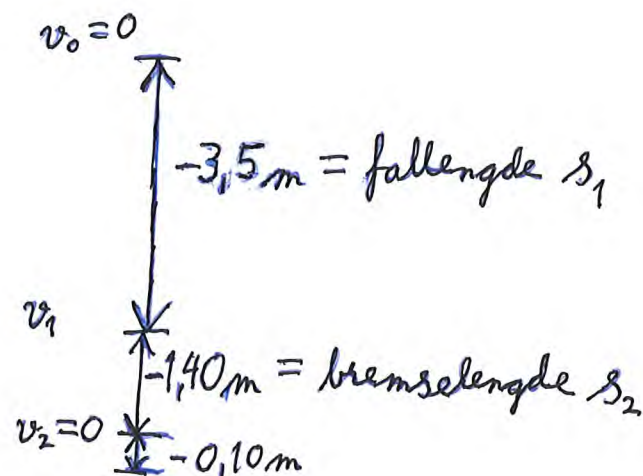 v₀=0
-3,5 m = fallengde s₁
v₁
-1,40 m = bremselengde s₂
v₂=0
-0,10 m